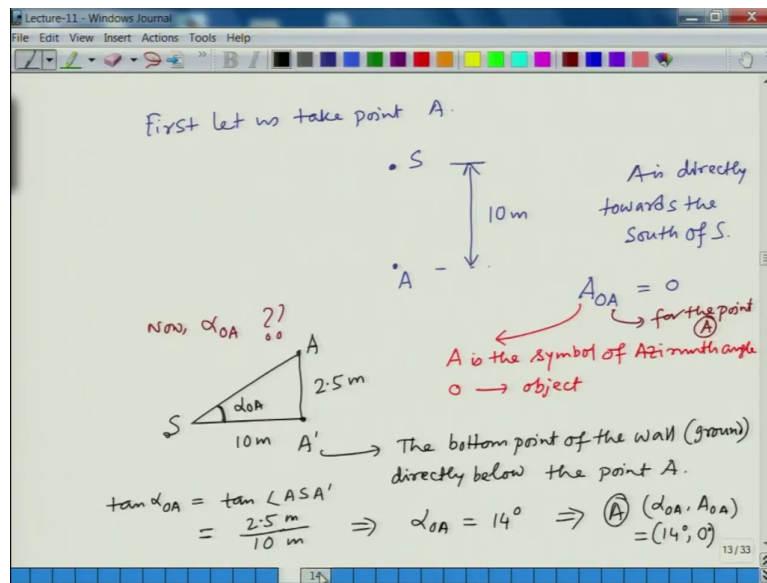 Lecture-11 - Windows Journal
File Edit View Insert Actions Tools Help
First let us take point A.
S
10 m
A
A is directly
towards the
South of S.
A_OA = 0
for the point
A
A is the symbol of Azimuth angle
O → object
Now, α_OA ??
A
2.5 m
α_OA
S
10 m A'
The bottom point of the wall (ground)
directly below the point A.
tan α_OA = tan ∠ASA'
= 2.5 m / 10 m ⇒ α_OA = 14° ⇒ A (α_OA, A_OA)
= (14°, 0°)
13/33
14